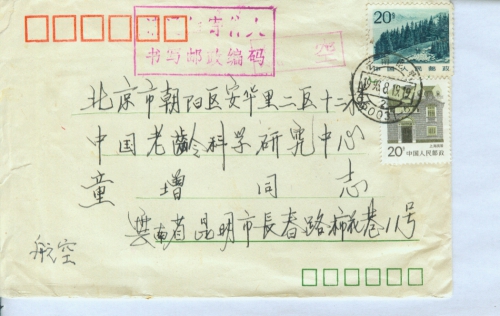 书写邮政编码
20分
北京市朝阳区安华里二区十三楼
中国老龄科学研究中心
20分
中国人民邮政
童增同志
云南省昆明市长春路麻花巷11号
航空